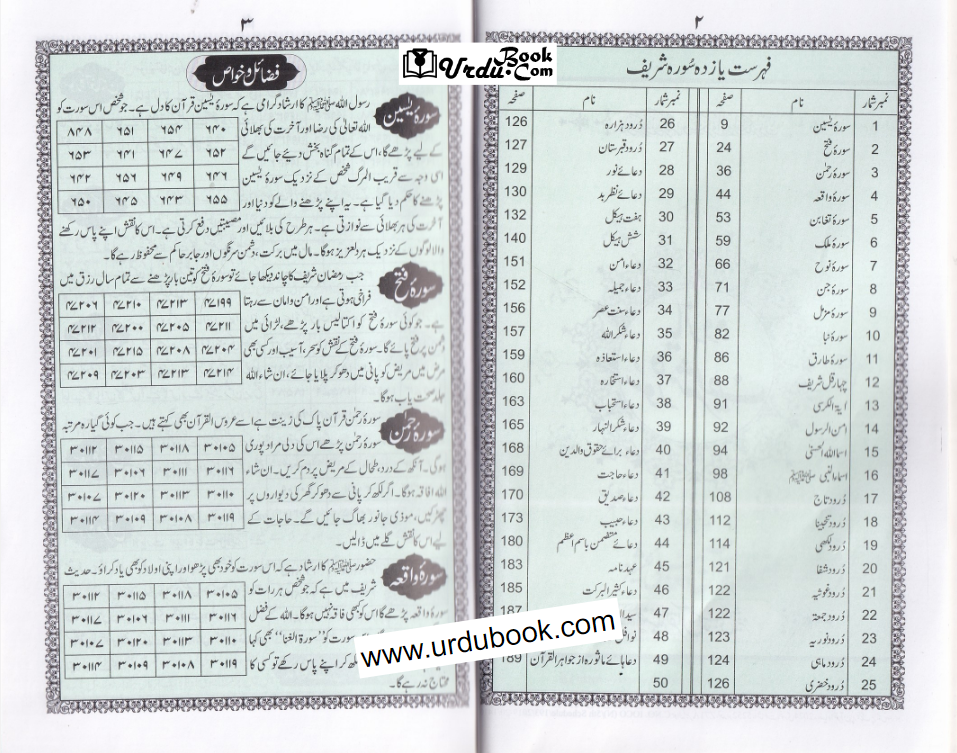 ۲
فہرست یازدہ سُورہ شریف
نمبر شمار نام صفحہ نمبر شمار نام صفحہ
1 سورۂ یٰسین 9 26 دُرود ہزارہ 126
2 سورۂ فتح 24 27 دُرود قبرستان 127
3 سورۂ رحمٰن 36 28 دعائے نور 129
4 سورۂ واقعہ 44 29 دعائے نظر بد 130
5 سورۂ تغابن 53 30 ہفت ہیکل 132
6 سورۂ ملک 59 31 شش ہیکل 140
7 سورۂ نوح 66 32 دعاء امن 151
8 سورۂ جن 71 33 دعاء جمیلہ 152
9 سورۂ مزمل 77 34 دعاء سنت عصر 156
10 سورۂ نبا 82 35 دعاء شکر اللہ 157
11 سورۂ طارق 86 36 دعاء استعاذہ 159
12 چہار قل شریف 88 37 دعاء استخارہ 160
13 ایۃ الکرسی 91 38 دعاء استحباب 163
14 امن الرسول 92 39 دعاء شکر النہار 165
15 اسماء اللہ الحسنٰی 94 40 دعاء برائے حقوق والدین 168
16 اسماء النبی ﷺ 98 41 دعاء حاجت 169
17 دُرود تاج 108 42 دعاء صدیق 170
18 دُرود تنجینا 112 43 دعاء حبیب 173
19 دُرود لکھی 114 44 دعائے متضمن باسم اعظم 180
20 دُرود شفا 121 45 عہد نامہ 183
21 دُرود غوثیہ 122 46 دعاء کثیر البرکت 185
22 دُرود جمعۃ 122 47 سید 187
23 دُرود نوریہ 123 48 نوافل
24 دُرود ماہی 124 49 دعا ہائے ماثورہ از جواہر القرآن 189
25 دُرود خضری 126 50
۳
فضائل و خواص
سورۂ یٰسین
رسول اللہ ﷺ کا ارشاد گرامی ہے کہ سورۂ یٰسین قرآن کا دل ہے۔ جو شخص اس سورت کو
اللہ تعالٰی کی رضا اور آخرت کی بھلائی
کے لیے پڑھے گا، اس کے تمام گناہ بخش دیئے جائیں گے
اسی وجہ سے قریب المرگ شخص کے نزدیک سورۂ یٰسین
پڑھنے کا حکم دیا گیا ہے۔ یہ اپنے پڑھنے والے کو دنیا اور
آخرت کی ہر بھلائی سے نوازتی ہے۔ ہر طرح کی بلائیں اور مصیبتیں دفع کرتی ہے۔ اس کا نقش اپنے پاس رکھنے
والا لوگوں کے نزدیک ہر دلعزیز ہوگا۔ مال میں برکت، دشمن سرنگوں اور جابر حاکم سے محفوظ رہے گا۔
۸۴۸ ۶۵۱ ۶۵۴ ۶۴۰
۶۵۳ ۶۴۱ ۶۴۷ ۶۵۲
۶۴۲ ۶۵۶ ۶۴۹ ۶۴۶
۶۵۰ ۶۴۵ ۶۴۳ ۶۵۵
سورۂ فتح
جب رمضان شریف کا چاند دیکھا جائے تو سورۂ فتح کو تین بار پڑھنے سے تمام سال رزق میں
فراخی ہوتی ہے اور امن و امان سے رہتا
ہے۔ جو کوئی سورۂ فتح کو اکتالیس بار پڑھے، لڑائی میں
دشمن پر فتح پائے گا۔ سورۂ فتح کے نقش کو سحر، آسیب اور کسی بھی
مرض میں مریض کو پانی میں دھو کر پلایا جائے، ان شاء اللہ
جلد صحت یاب ہوگا۔
۴۷۲۰۶ ۴۷۲۱۰ ۴۷۲۱۳ ۴۷۱۹۹
۴۷۲۱۲ ۴۷۲۰۰ ۴۷۲۰۵ ۴۷۲۱۱
۴۷۲۰۱ ۴۷۲۱۵ ۴۷۲۰۸ ۴۷۲۰۴
۴۷۲۰۹ ۴۷۲۰۳ ۴۷۲۱۳ ۴۷۲۱۴
سورۂ رحمٰن
سورۂ رحمٰن قرآن پاک کی زینت ہے اسے عروس القرآن بھی کہتے ہیں۔ جب کوئی گیارہ مرتبہ
سورۂ رحمٰن پڑھے اس کی دلی مراد پوری
ہوگی۔ آنکھ کے درد، طحال کے مریض پر دم کریں۔ ان شاء
اللہ افاقہ ہوگا۔ اگر لکھ کر پانی سے دھو کر گھر کی دیواروں پر
چھڑکیں، موذی جانور بھاگ جائیں گے۔ حاجات کے
لیے اس کا نقش گلے میں ڈالیں۔
۳۰۱۱۲ ۳۰۱۱۵ ۳۰۱۱۸ ۳۰۱۰۵
۳۰۱۱۷ ۳۰۱۰۶ ۳۰۱۱۱ ۳۰۱۱۶
۳۰۱۰۷ ۳۰۱۲۰ ۳۰۱۱۳ ۳۰۱۱۰
۳۰۱۱۴ ۳۰۱۰۹ ۳۰۱۰۸ ۳۰۱۱۹
سورۂ واقعہ
حضور ﷺ کا ارشاد ہے کہ اس سورت کو خود بھی پڑھو اور اپنی اولاد کو بھی یاد کراؤ۔ حدیث
شریف میں ہے کہ جو شخص ہر رات کو
سورۂ واقعہ پڑھے گا اس کو کبھی فاقہ نہیں ہوگا۔ اللہ کے فضل
سورت کو "سورۃ الغنا" بھی کہا
لکھ کر اپنے پاس رکھے تو کسی کا
محتاج نہ رہے گا۔
۳۰۱۱۲ ۳۰۱۱۵ ۳۰۱۱۸ ۳۰۱۰۵
۳۰۱۱۷ ۳۰۱۰۶ ۳۰۱۱۱ ۳۰۱۱۶
۳۰۱۰۷ ۳۰۱۲۰ ۳۰۱۱۳ ۳۰۱۱۰
۳۰۱۱۴ ۳۰۱۰۹ ۳۰۱۰۸ ۳۰۱۱۹
UrduBook.Com
www.urdubook.com